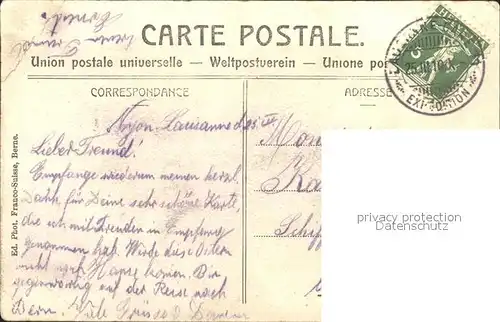 CARTE POSTALE.
Union postale universelle — Weltpostverein — Unione po
CORRESPONDANCE
ADRESSE
25.III.10
EXPEDITION
HELVETIA
Nyon-Lausanne d. 25. III
Lieber Freund!
Empfange wiederum meinen herzl.
Dank für Deine sehr schöne Karte,
die ich mit Freuden in Empfang
genommen hab. Werde diese Ostern
nicht nach Hause kommen. Bin
gegenwärtig auf der Reise nach
Bern. Viele Grüsse
Ed. Phot. Franco-Suisse, Berne.
privacy protection
Datenschutz